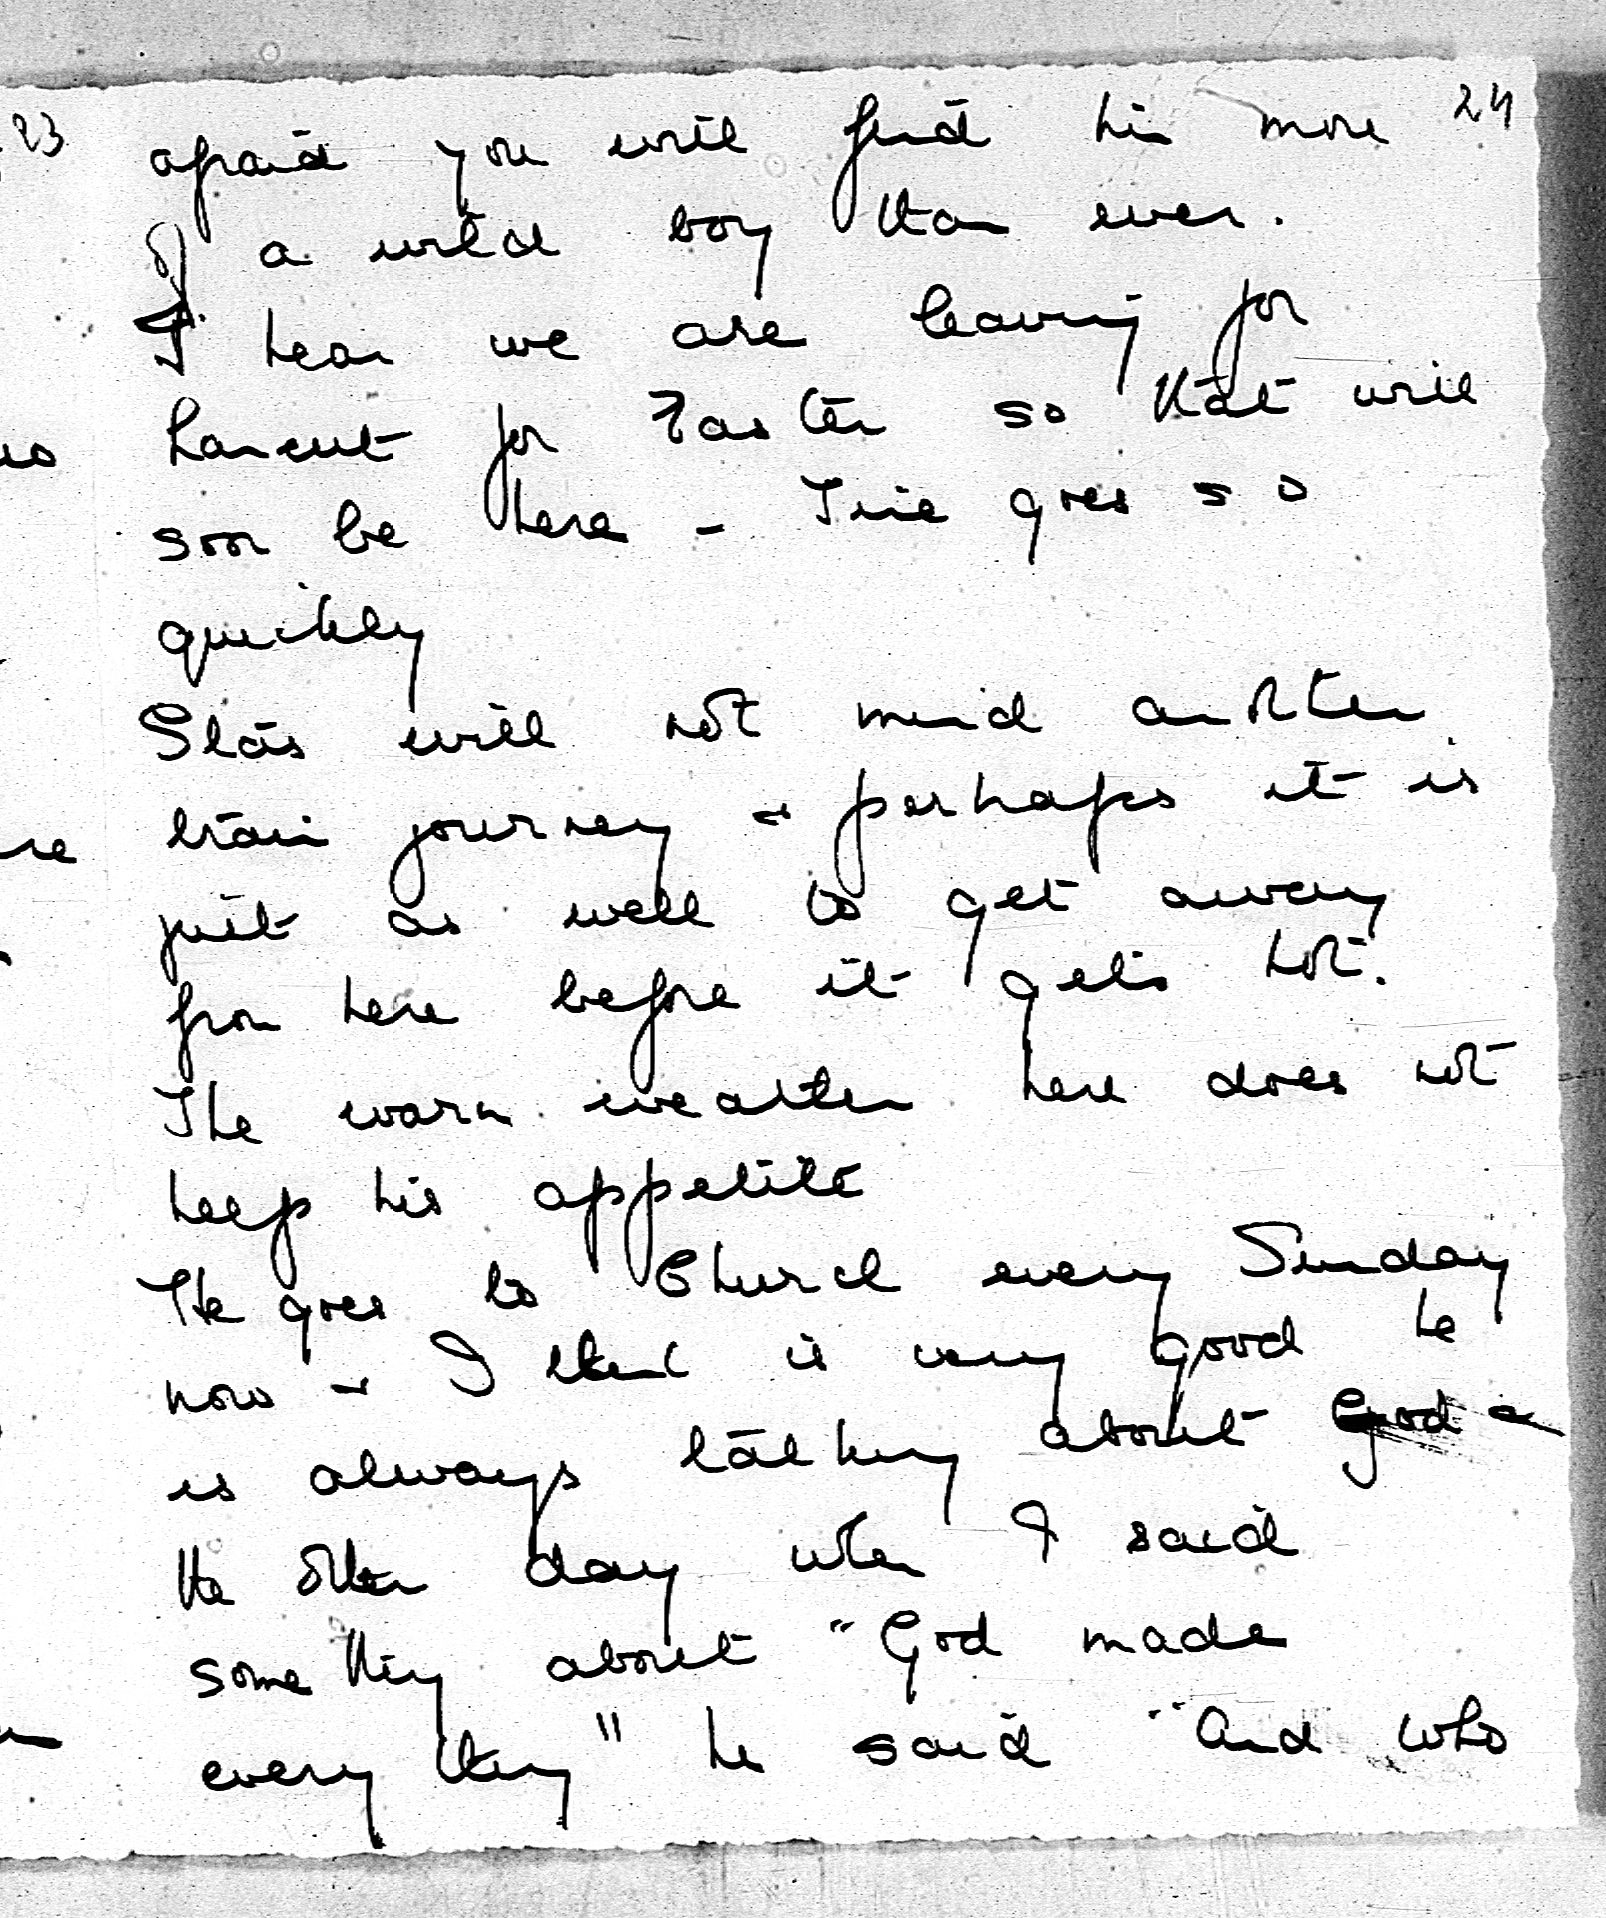 23
24
afraid you will find him more
of a wild boy than ever.
I hear we are leaving for
Lancut for Easter so that will
soon be here - Time goes so
quickly
Stas will not mind another
train journey & perhaps it is
just as well to get away
from here before it gets hot.
The warm weather here does not
keep his appetite
He goes to Church every Sunday
now & I think is very good he
is always talking about God &
the other day when I said
something about "God made
everything" he said "And who